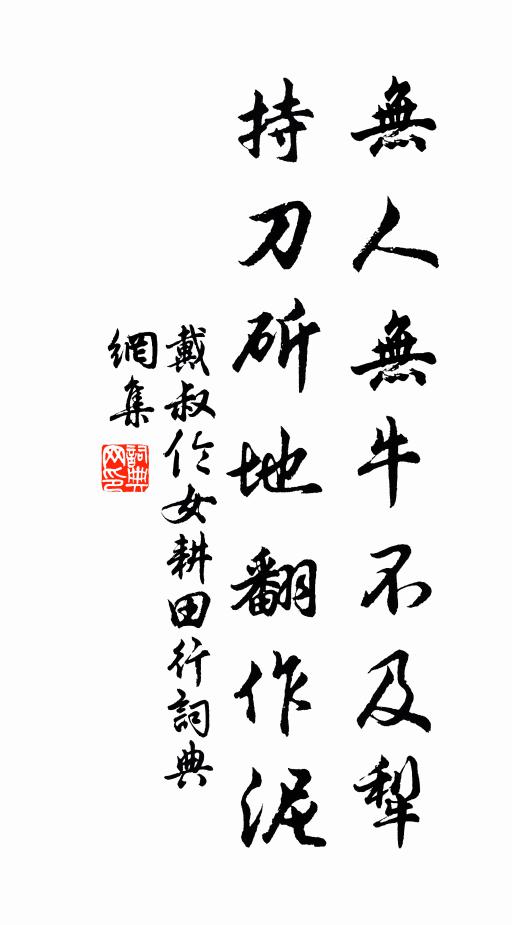 無人無牛不及犁
持刀斫地翻作泥
戴叔伦女耕田行詞典
網集
詞典网印